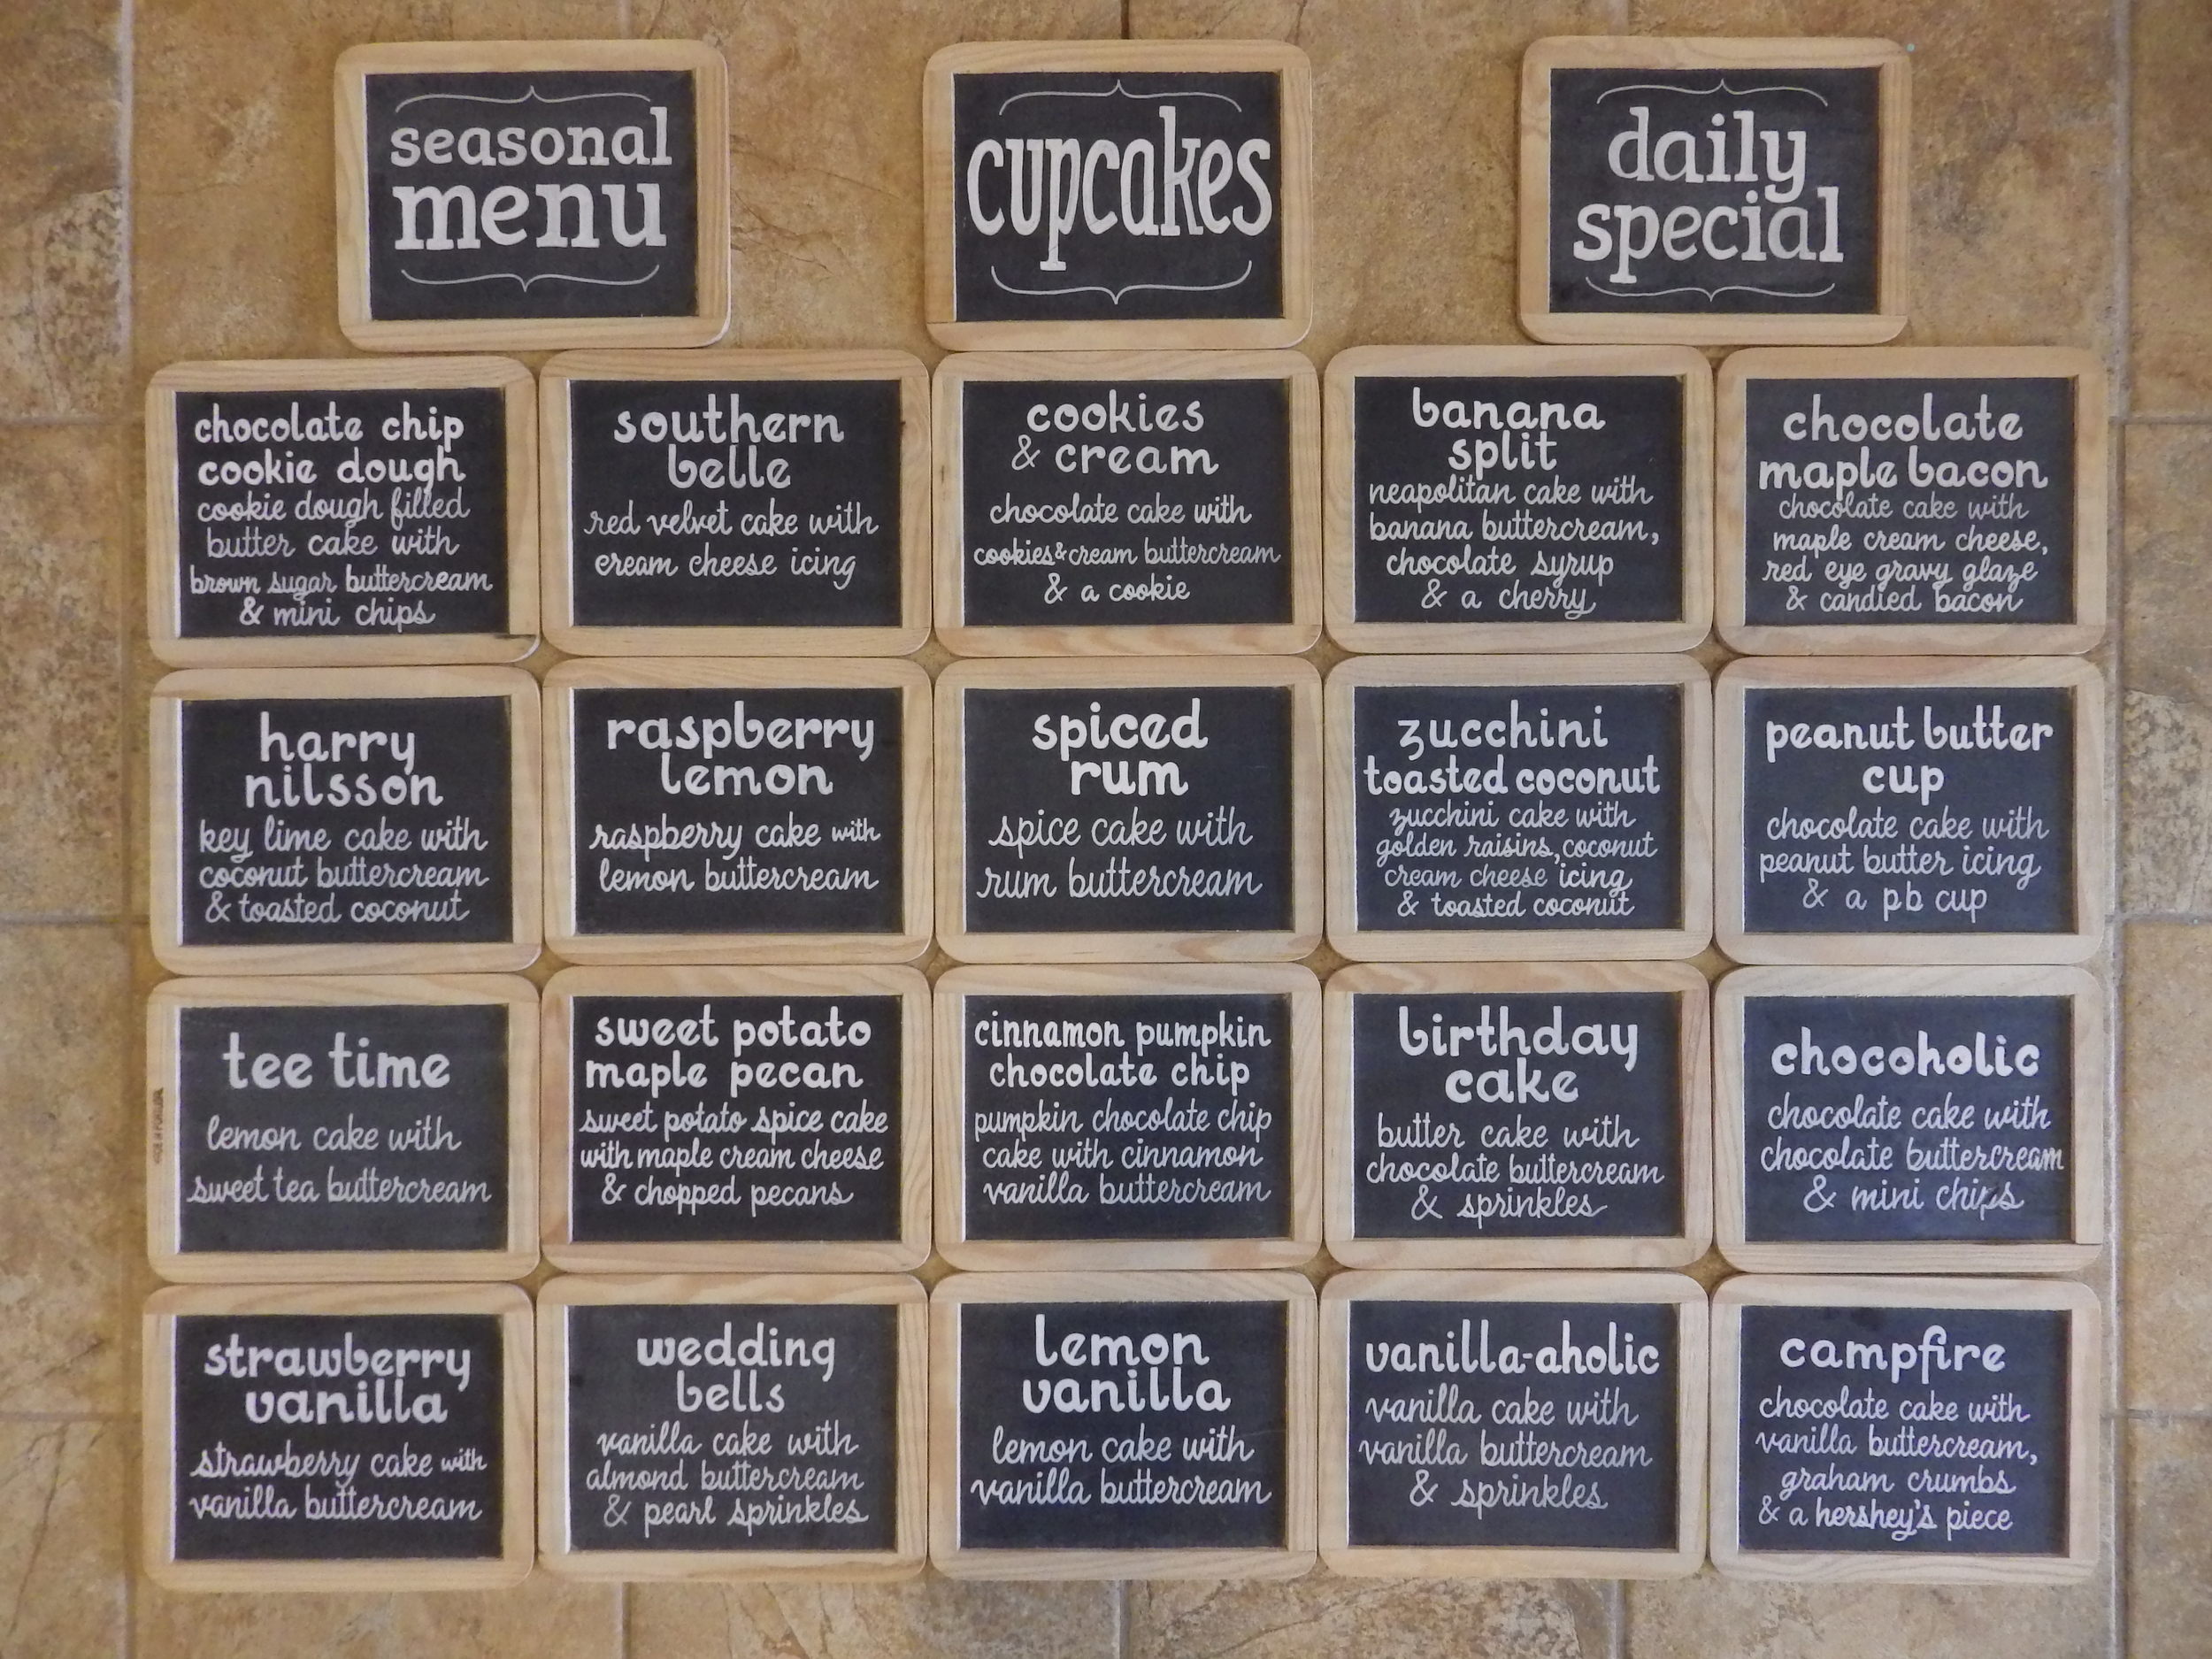 seasonal
menu
cupcakes
daily
special
chocolate chip
cookie dough
cookie dough filled
butter cake with
brown sugar buttercream
& mini chips
southern
belle
red velvet cake with
cream cheese icing
cookies
& cream
chocolate cake with
cookies & cream buttercream
& a cookie
banana
split
neapolitan cake with
banana buttercream,
chocolate syrup
& a cherry
chocolate
maple bacon
chocolate cake with
maple cream cheese,
red eye gravy glaze
& candied bacon
harry
nilsson
key lime cake with
coconut buttercream
& toasted coconut
raspberry
lemon
raspberry cake with
lemon buttercream
spiced
rum
spice cake with
rum buttercream
zucchini
toasted coconut
zucchini cake with
golden raisins, coconut
cream cheese icing
& toasted coconut
peanut butter
cup
chocolate cake with
peanut butter icing
& a pb cup
tee time
lemon cake with
sweet tea buttercream
sweet potato
maple pecan
sweet potato spice cake
with maple cream cheese
& chopped pecans
cinnamon pumpkin
chocolate chip
pumpkin chocolate chip
cake with cinnamon
vanilla buttercream
birthday
cake
butter cake with
chocolate buttercream
& sprinkles
chocoholic
chocolate cake with
chocolate buttercream
& mini chips
strawberry
vanilla
strawberry cake with
vanilla buttercream
wedding
bells
vanilla cake with
almond buttercream
& pearl sprinkles
lemon
vanilla
lemon cake with
vanilla buttercream
vanilla-aholic
vanilla cake with
vanilla buttercream
& sprinkles
campfire
chocolate cake with
vanilla buttercream,
graham crumbs
& a hershey's piece